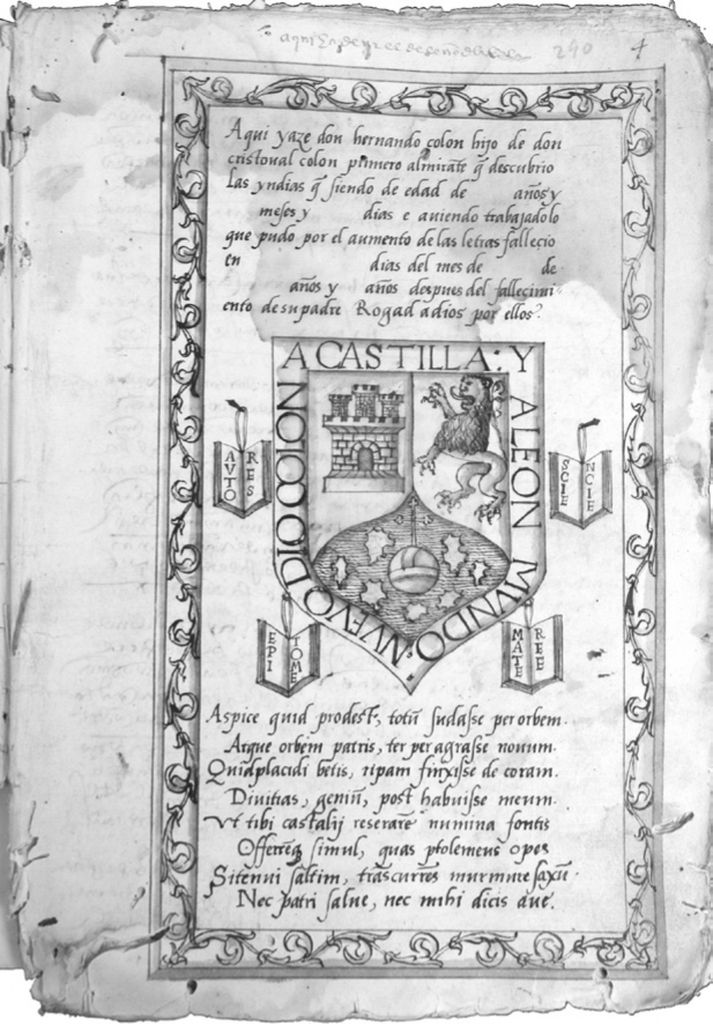 290 4
Aqui yaze don hernando colon hijo de don
cristoual colon primero almirāte q̄ descubrio
Las yndias q̄ siendo de edad de años y
meses y dias e auiendo trabajado lo
que pudo por el aumento de las letras fallecio
en dias del mes de de
años y años despues del fallecimi-
ento de su padre Rogad a dios por ellos.
A CASTILLA: Y
ALEON MUNDO: NVEVO DIO COLON
AVTO RES
SCIE NCIE
EPI TOME
MATE REE
Aspice quid prodest, totū sudasse per orbem.
Atque orbem patris, ter peragrasse nouum.
Quid placidi betis, ripam finxisse decoram.
Diuitias, geniū, post habuisse meum.
Vt tibi castalij reserarē numina fontis
Offerrēq simul, quas ptolemeus opes
Si tenui saltim, trāscurrēs murmure saxū.
Nec patri salue, nec mihi dicis aue.